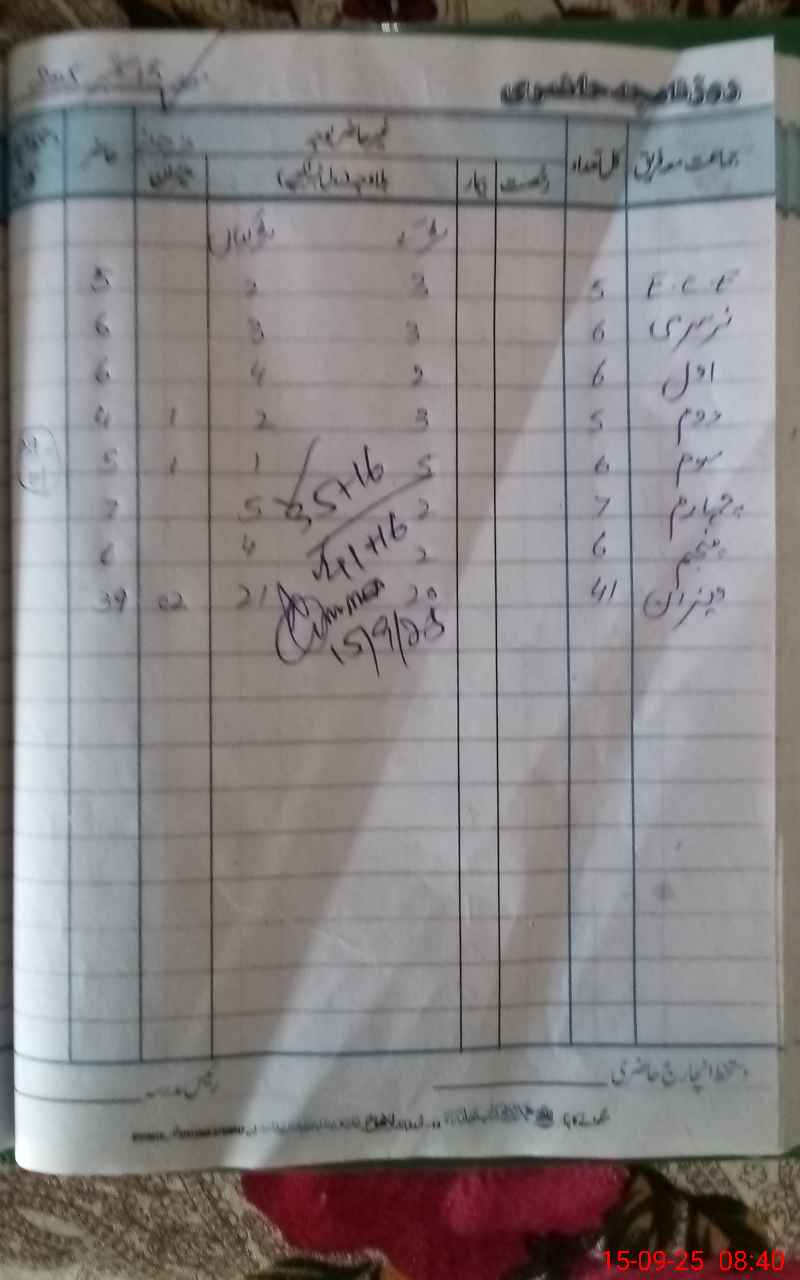 روزنامچہ حاضری
جماعت کل تعداد رخصت بیمار غیر حاضر حاضر
لڑکے لڑکیاں
E.C.E 5 3 2 5
نرسری 6 3 3 6
اول 6 2 4 6
دوم 5 3 2 1 4
سوم 6 5 1 1 5
چہارم 7 2 5 7
پنجم 6 2 4 6
میزان 41 20 21 02 39
35+16
41+16
15/9/25
دستخط انچارج حاضری
رئیس مدرسہ
15-09-25 08:40